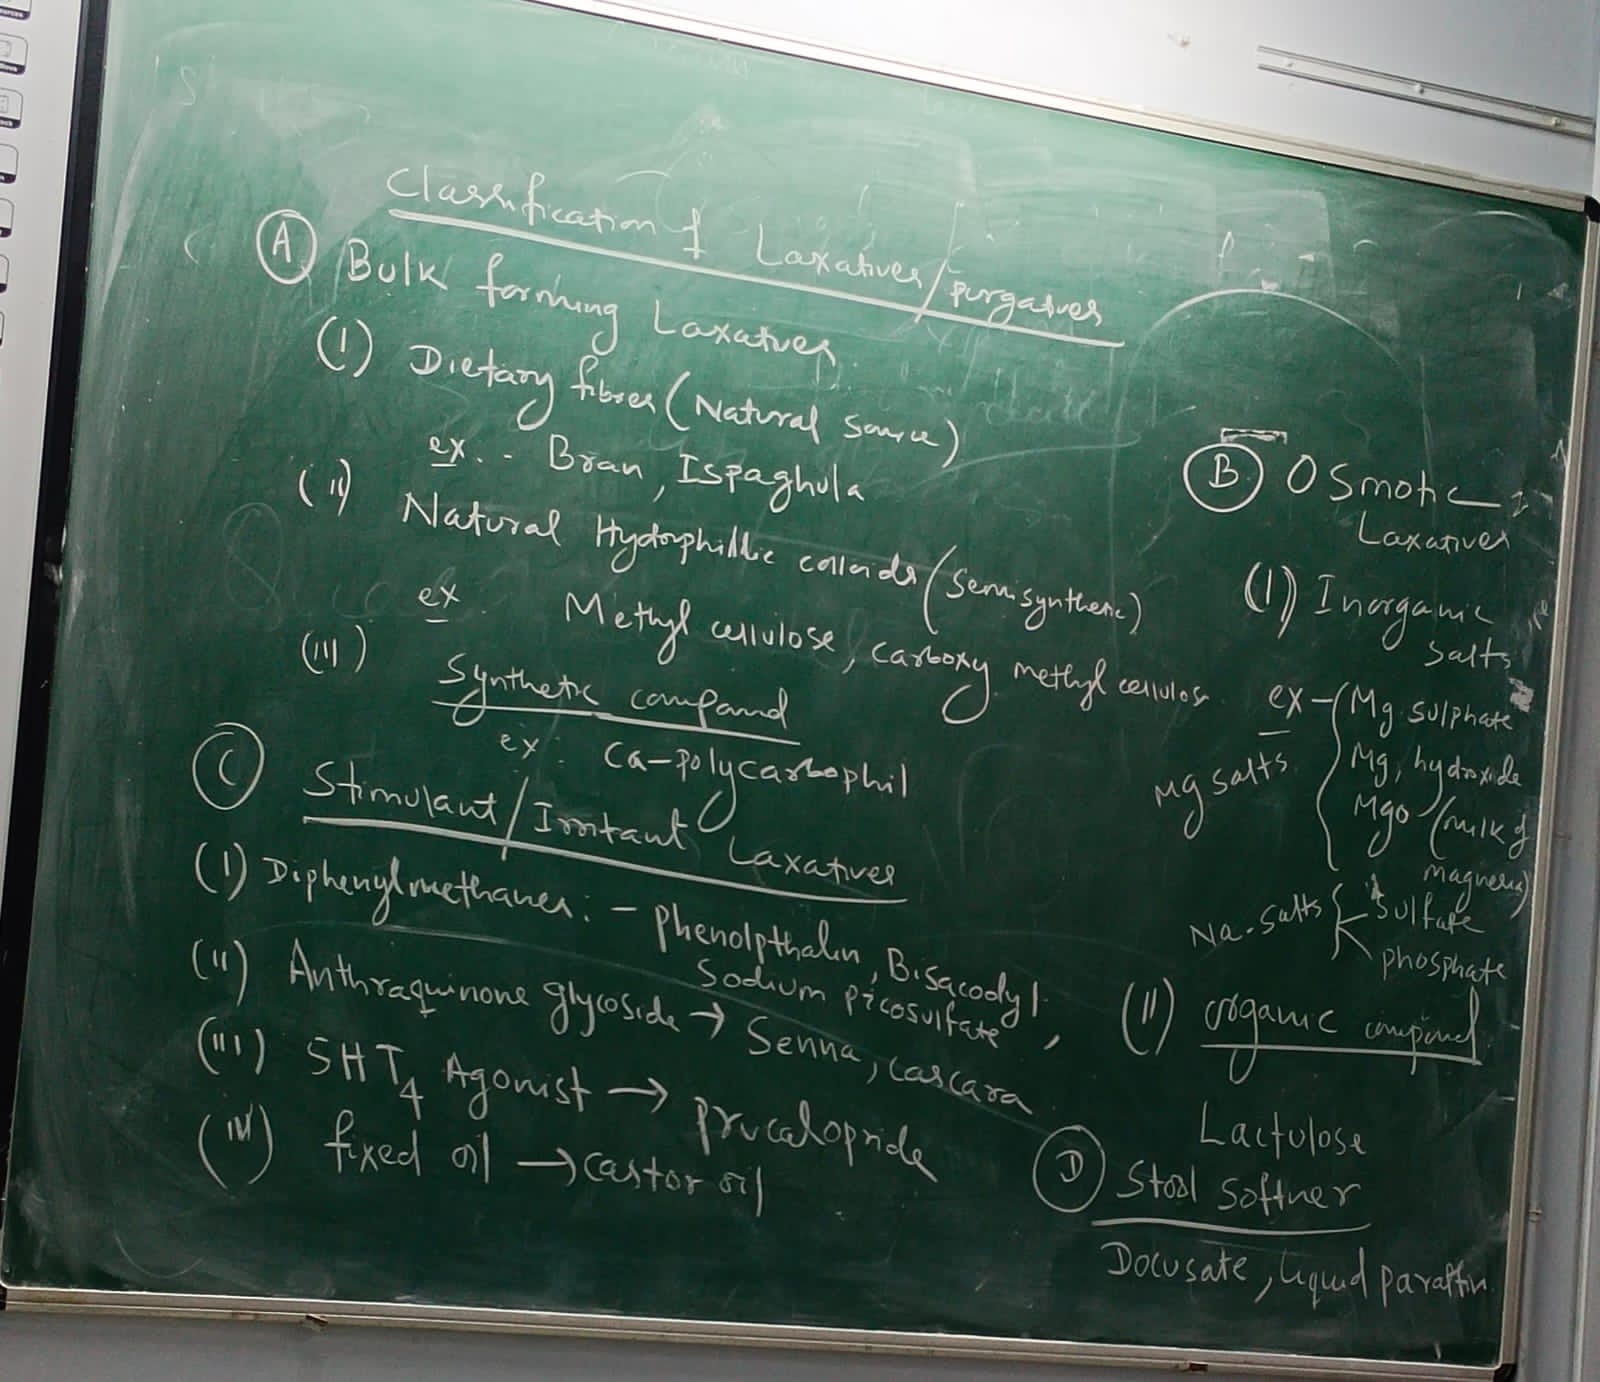 Classification of Laxatives/purgatives
(A) Bulk forming Laxatives
(I) Dietary fibres (Natural source)
ex. - Bran, Ispaghula
(II) Natural Hydrophillic colloids (Semisynthetic)
ex. Methyl cellulose, carboxy methyl cellulose
(III) Synthetic compound
ex: Ca-polycarbophil
(B) Osmotic
Laxatives
(I) Inorganic
salts
ex - Mg. sulphate
Mg salts
Mg, hydroxide
MgO (milk of
magnesia)
Na-salts
sulfate
phosphate
(II) organic compound
Lactulose
(C) Stimulant/Irritant Laxatives
(I) Diphenylmethanes: - phenolpthalin, Bisacodyl
Sodium picosulfate,
(II) Anthraquinone glycoside → Senna, cascara
(III) 5HT4 Agonist → prucalopride
(IV) fixed oil → castor oil
(D) Stool Softner
Docusate, liquid paraffin